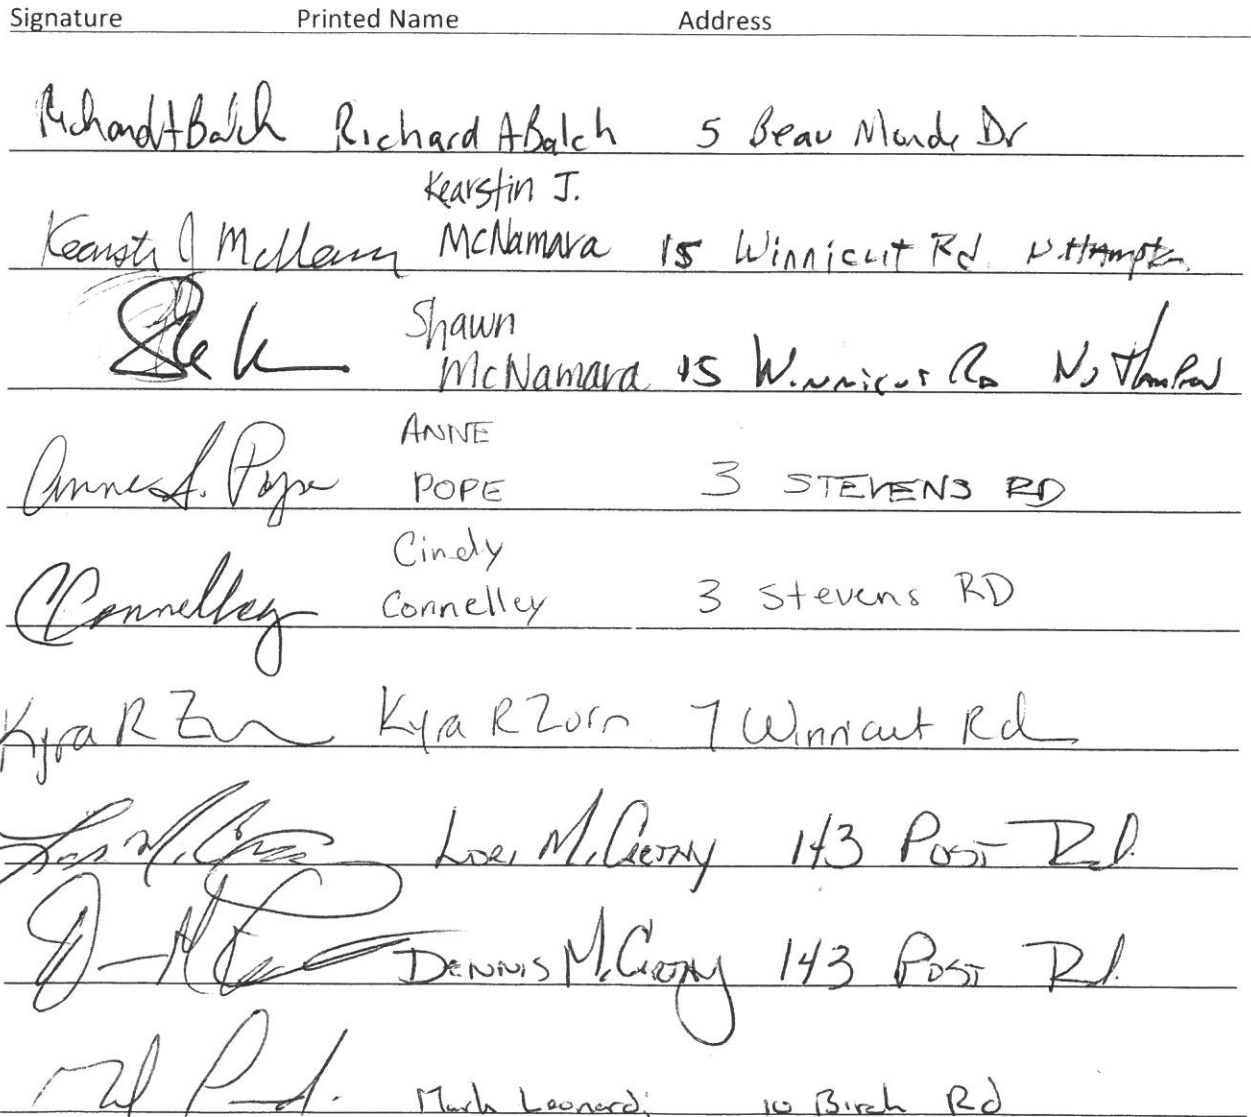 Signature Printed Name Address
Richard A Balch Richard A Balch 5 Beau Monde Dr
Kearstin J.
Kearstin J McNamara McNamara 15 Winnicut Rd N. Hampton
Shawn
McNamara 15 Winnicut Rd No Hampton
ANNE
Anne S. Pope POPE 3 STEVENS RD
Cindy
CConnelley Connelley 3 Stevens RD
Kyra R Zorn Kyra R Zorn 7 Winnicut Rd
Lori 143 Post Rd.
DENNIS 143 Post Rd.
Mark Leonardi 10 Birch Rd